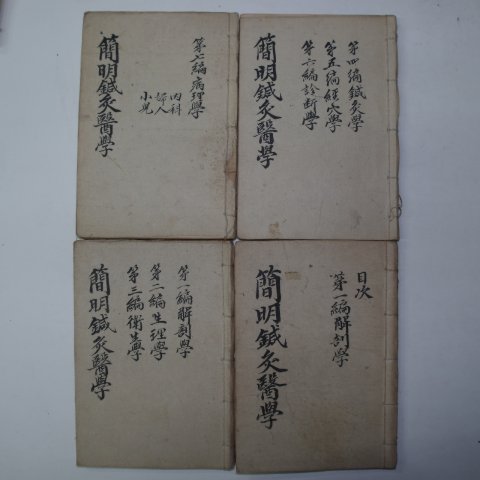 簡明鍼灸醫學
第七編病理學
內科
婦人
小兒
簡明鍼灸醫學
第四編鍼灸學
第五編經穴學
第六編診断學
簡明鍼灸醫學
第一編解剖學
第二編生理學
第三編衛生學
簡明鍼灸醫學
目次
第一編解剖學